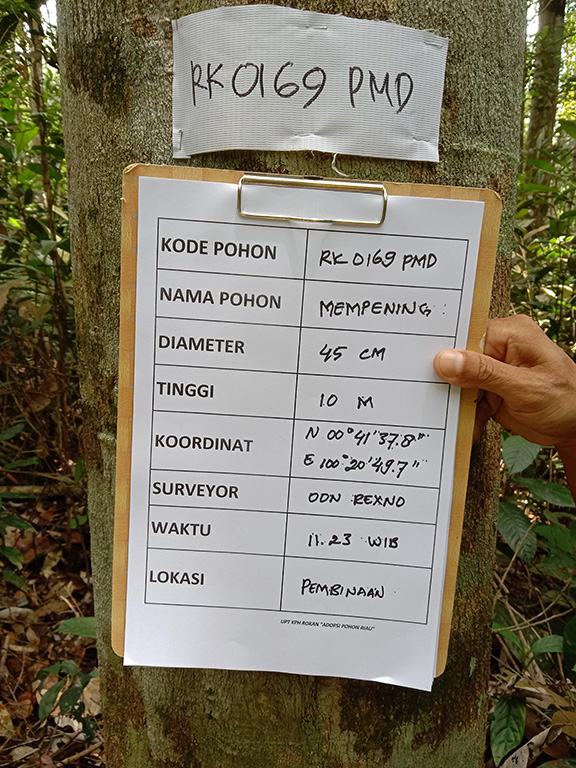 RK0169 PMD
KODE POHON RK0169 PMD
NAMA POHON MEMPENING
DIAMETER 45 CM
TINGGI 10 M
KOORDINAT N 00°41'37.8"
E 100°20'49.7"
SURVEYOR ODN REXNO
WAKTU 11.23 WIB
LOKASI PEMBINAAN
UPT KPH ROKAN "ADOPSI POHON RIAU"